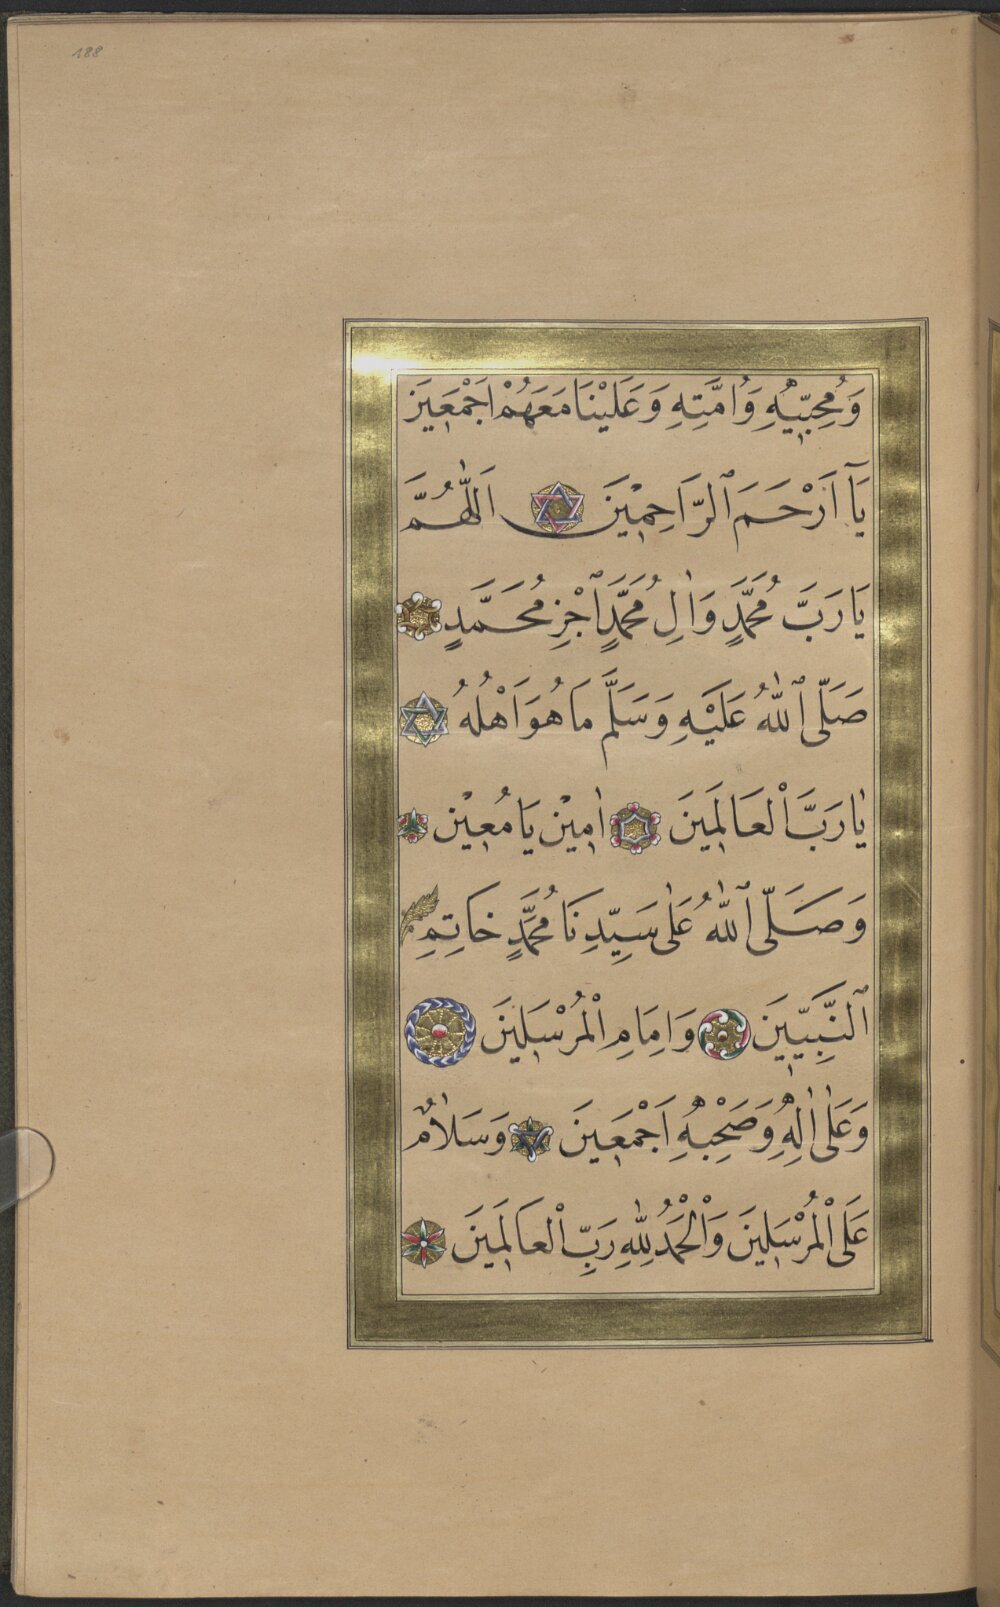 188
وَمُحِبِّيهِ وَاُمَّتِهِ وَعَلَيْنَا مَعَهُمْ اَجْمَعِينَ
يَآ اَرْحَمَ ٱلرَّاحِمِيْنَ اَللّٰهُمَّ
يَا رَبَّ مُحَمَّدٍ وَاٰلِ مُحَمَّدٍ ٱجْزِ مُحَمَّدٍ
صَلَّى ٱللّٰهُ عَلَيْهِ وَسَلَّمَ مَا هُوَ اَهْلُهُ
يٰارَبَّ اْلعَالَمِينَ اٰمِيْن يَا مُعِيْن
وَصَلَّى ٱللّٰهُ عَلٰى سَيِّدِنَا مُحَمَّدٍ خَاتِمِ
ٱلنَّبِيِّينَ وَاِمَامِ اْلمُرْسَلِينَ
وَعَلٰى اٰلِهِ وَصَحْبِهِ اَجْمَعِينَ وَسَلَامٌ
عَلَى اْلمُرْسَلِينَ وَاْلحَمْدُ لِلّٰهِ رَبِّ اْلعَالَمِينَ